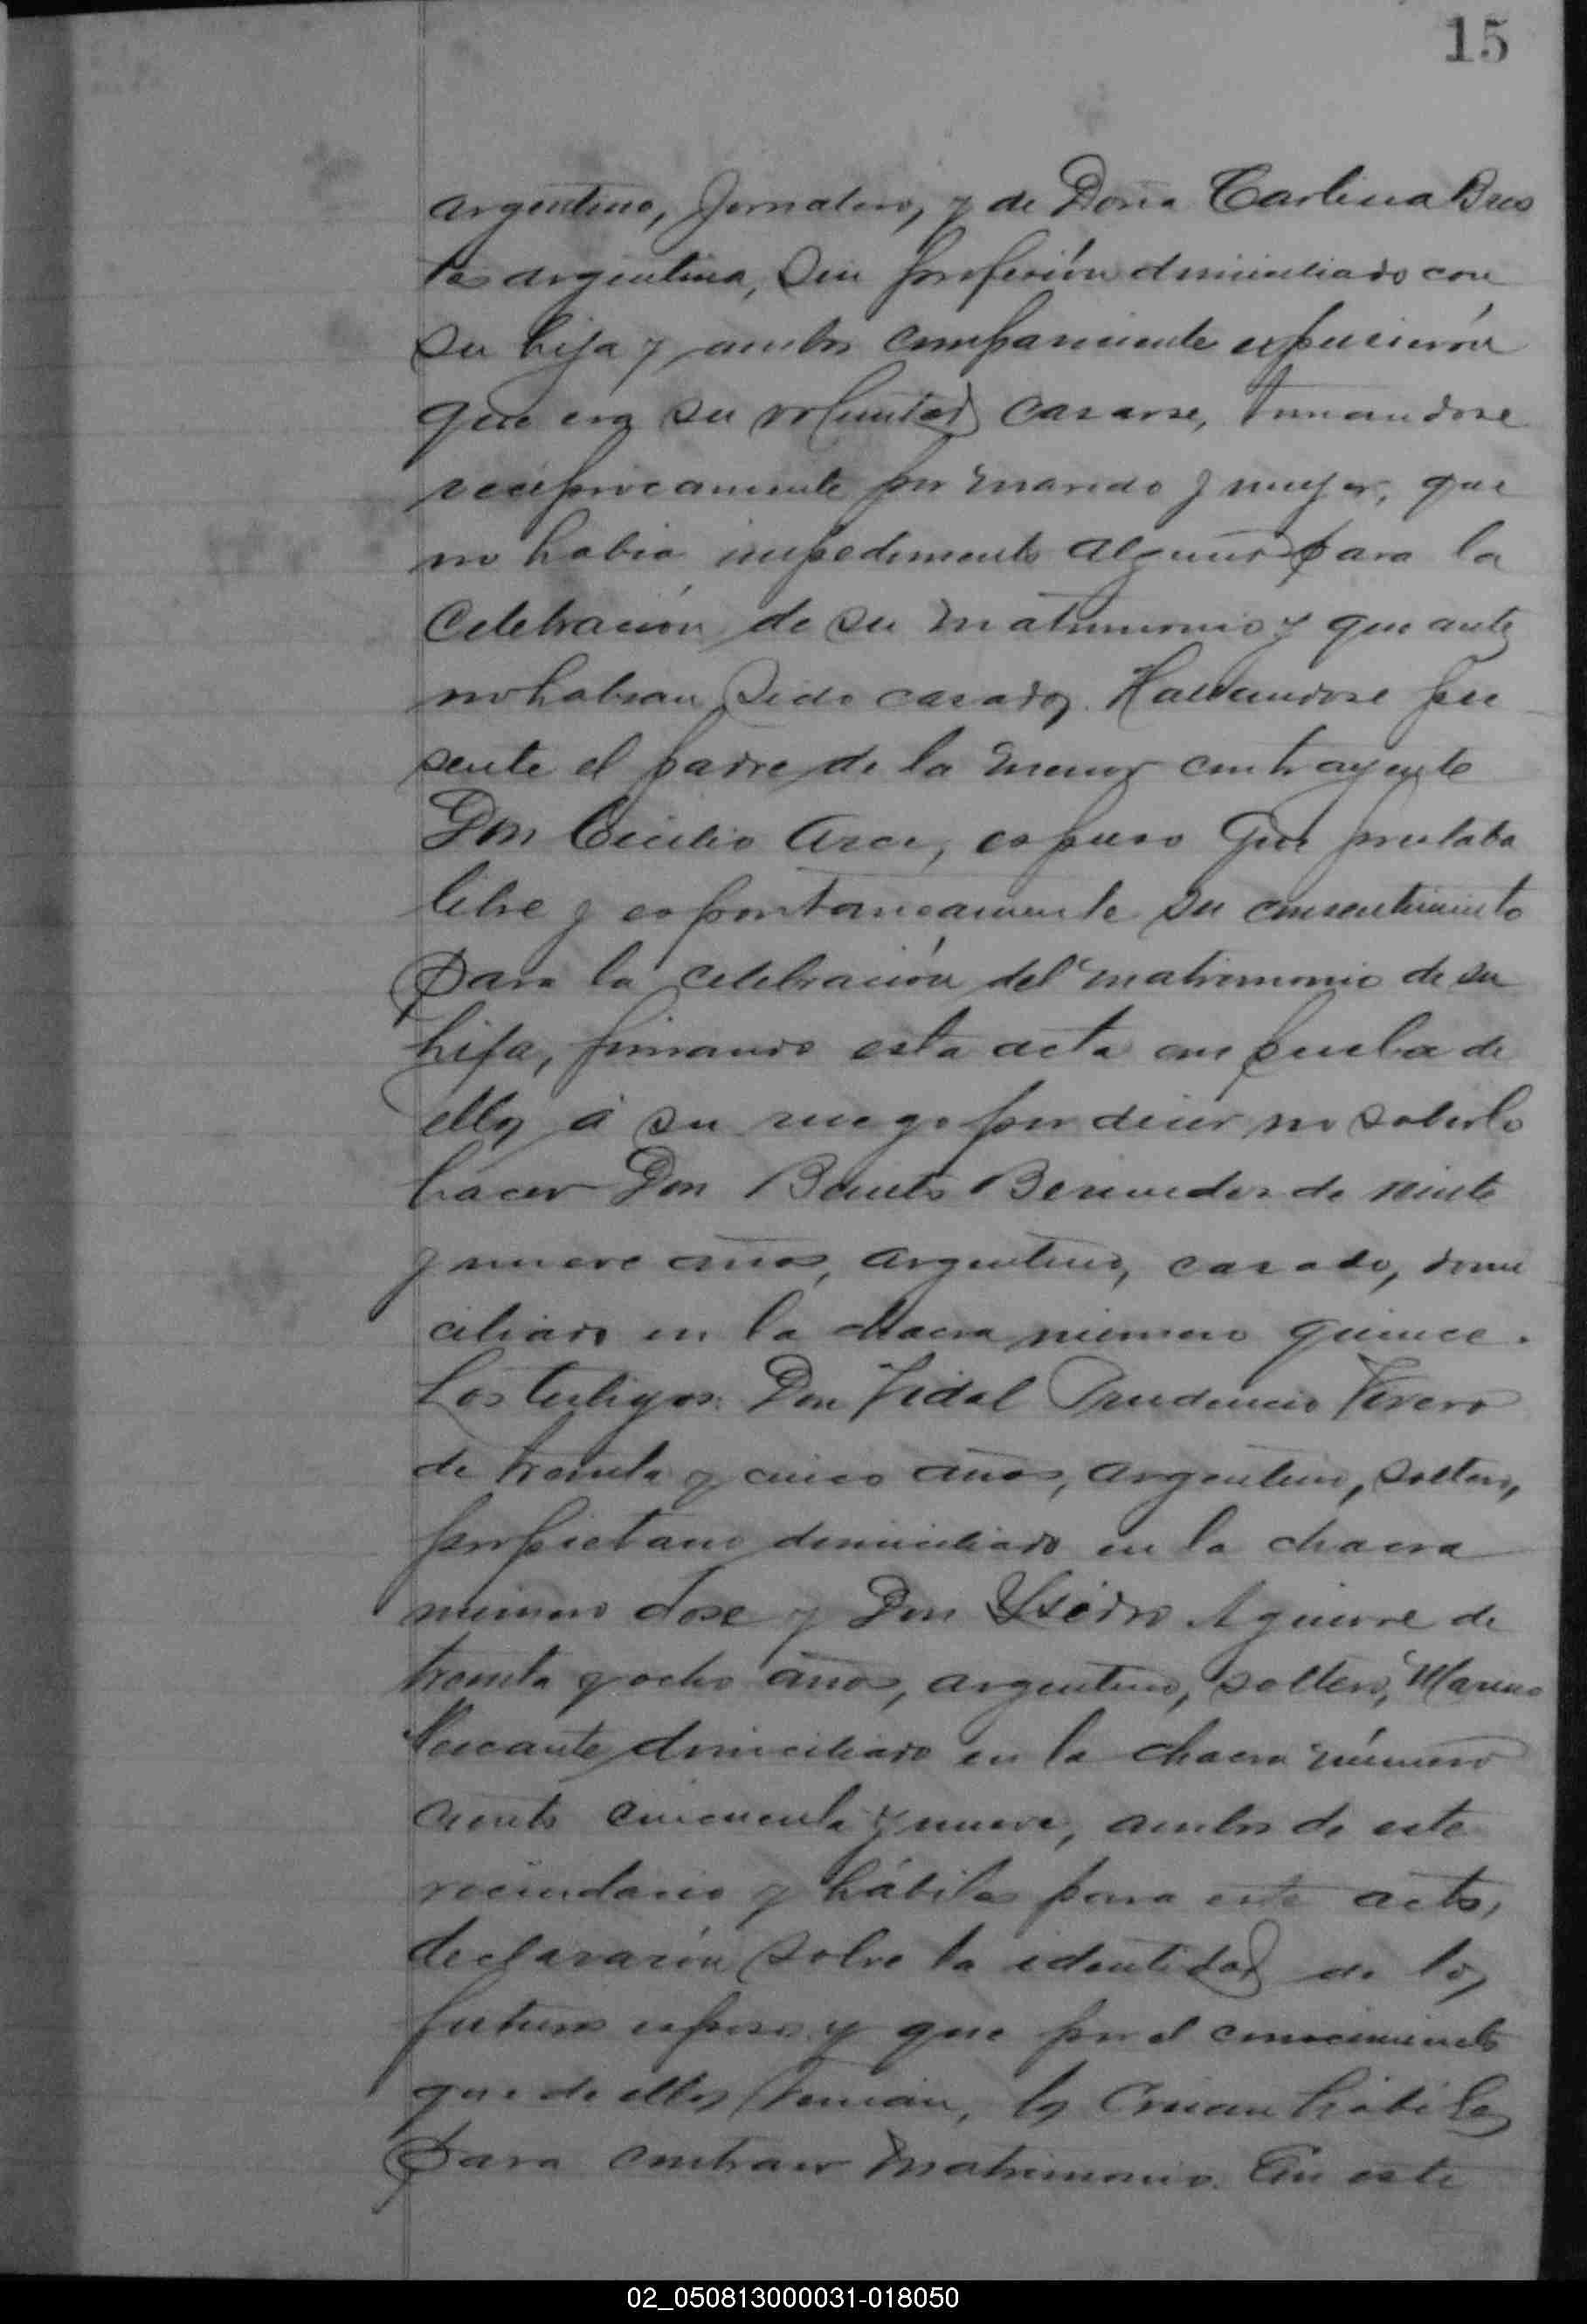 15
argentino, Jornalero, y de Doña Carlina Bus
tos argentina, sin profesión domiciliado con
su hija y ambos compareciente expusierón
que era su voluntad casarse, tomandose
reciprocamente por marido y mujer, que
no habia impedimento alguno para la
Celebración de su matrimonio y que antes
no habian sido casados. Hallandose pre
sente el padre de la menor contrayente
Don Cicilio Arce, espuso que prestaba
libre y espontaneamente su consentimiento
para la celebración del matrimonio de su
hija, firmando esta acta en prueba de
ello, á su ruego por decir no saberlo
hacer Don Benito Benavides de veinte
y nueve años, argentino, casado, domi
ciliado en la chacra número quince.
Los testigos: Don Vidal Prudencio
de treinta y cinco años, argentino, soltero,
propietario domiciliado en la chacra
número dose y Don Ysidro Aguirre de
treinta y ocho años, argentino, soltero, Marino
Mercante domiciliado en la chacra número
ciento cincuenta y nueve, ambos de este
vecindario y hábiles para este acto,
declararón sobre la identidad de los
futuros esposos y que por el conocimiento
que de ellos tenian, los creian hábiles
para contraer matrimonio. En este
02_050813000031-018050